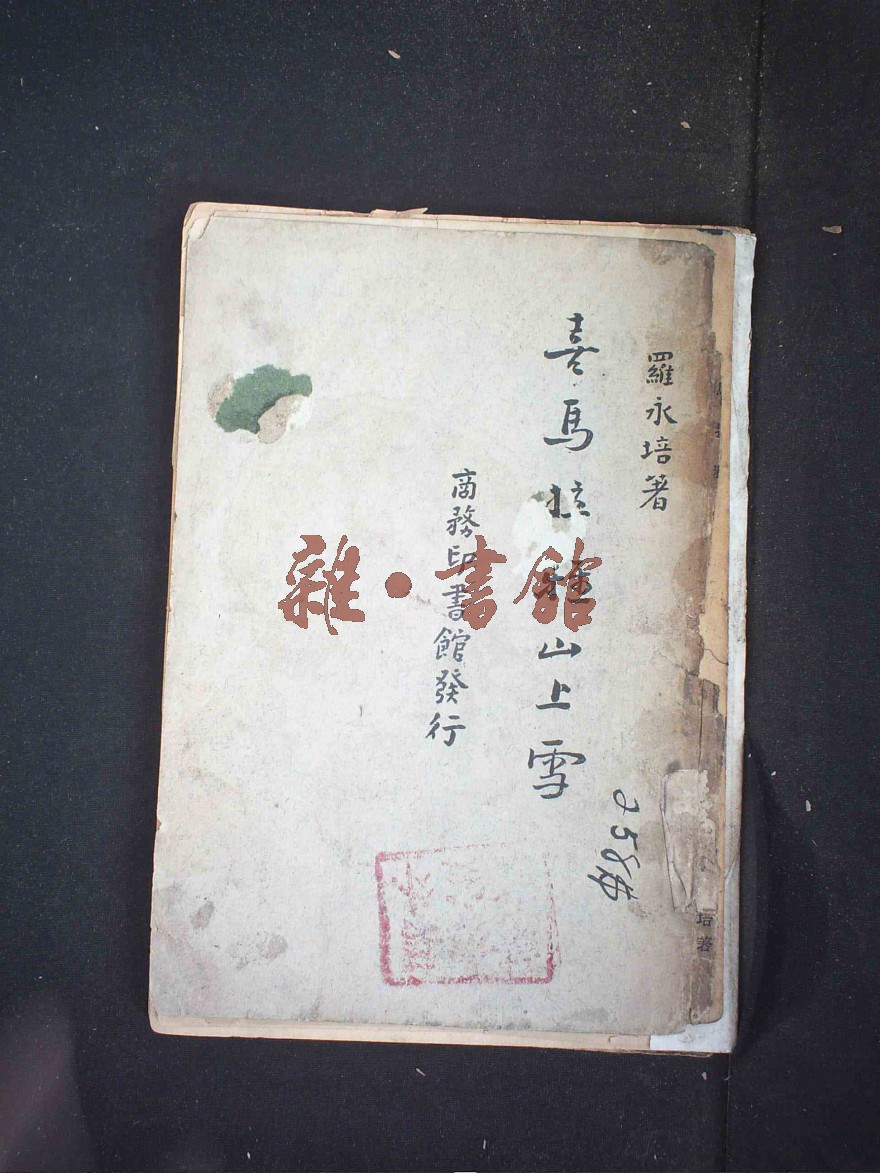 羅永培著
喜馬拉雅山上雪
商務印書館發行
雜·書館
258
培著